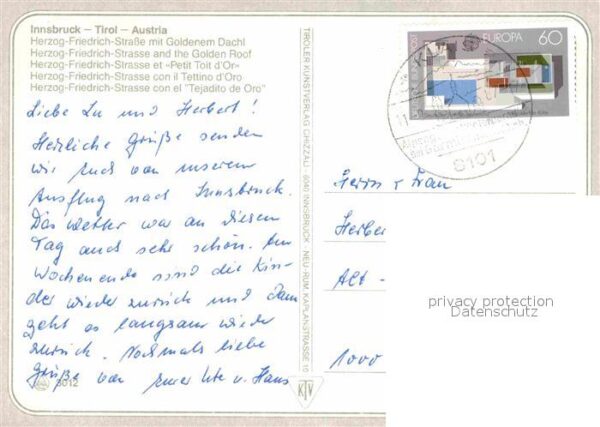 Innsbruck – Tirol – Austria
Herzog-Friedrich-Straße mit Goldenem Dachl
Herzog-Friedrich-Strasse and the Golden Roof
Herzog-Friedrich-Strasse et «Petit Toit d'Or»
Herzog-Friedrich-Strasse con il Tettino d'Oro
Herzog-Friedrich-Strasse con el "Tejadito de Oro"
Liebe Lu und Herbert!
Herzliche Grüße senden
wir Euch von unserem
Ausflug nach Innsbruck.
Das Wetter war an diesem
Tag auch sehr schön. Am
Wochenende sind die Kin-
der wieder zurück und dann
geht es langsam wieder
zurück. Nochmals liebe
Grüße von Eurer Ute u. Hans
5012
TIROLER KUNSTVERLAG CHIZZALI 6040 INNSBRUCK NEU-RUM, KAPLANSTRASSE 10
KTV
EUROPA 60
8101
Herrn u Frau
Herber
Alt-
1000
privacy protection
Datenschutz